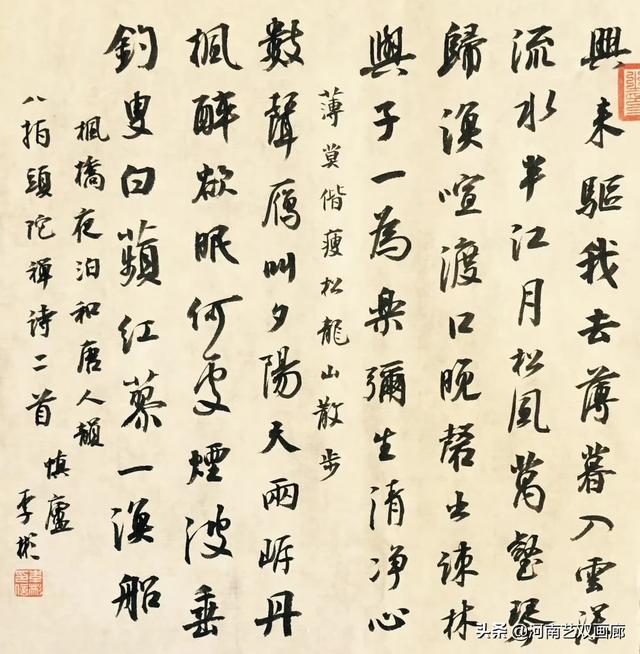 興来驅我去薄暮入雲深
流水半江月松風萬壑琴
歸漁喧渡口晚磬出疎林
與子一為樂彌生清净心
薄莫偕瘦松龍山散步
數聲鴈叫夕陽天兩岸丹
楓醉欲眠何處煙波垂
釣叟白蘋紅蓼一漁船
楓橋夜泊和唐人韻
八指頭陀禪詩二首
慎廬
李彬
头条 @河南艺双画廊